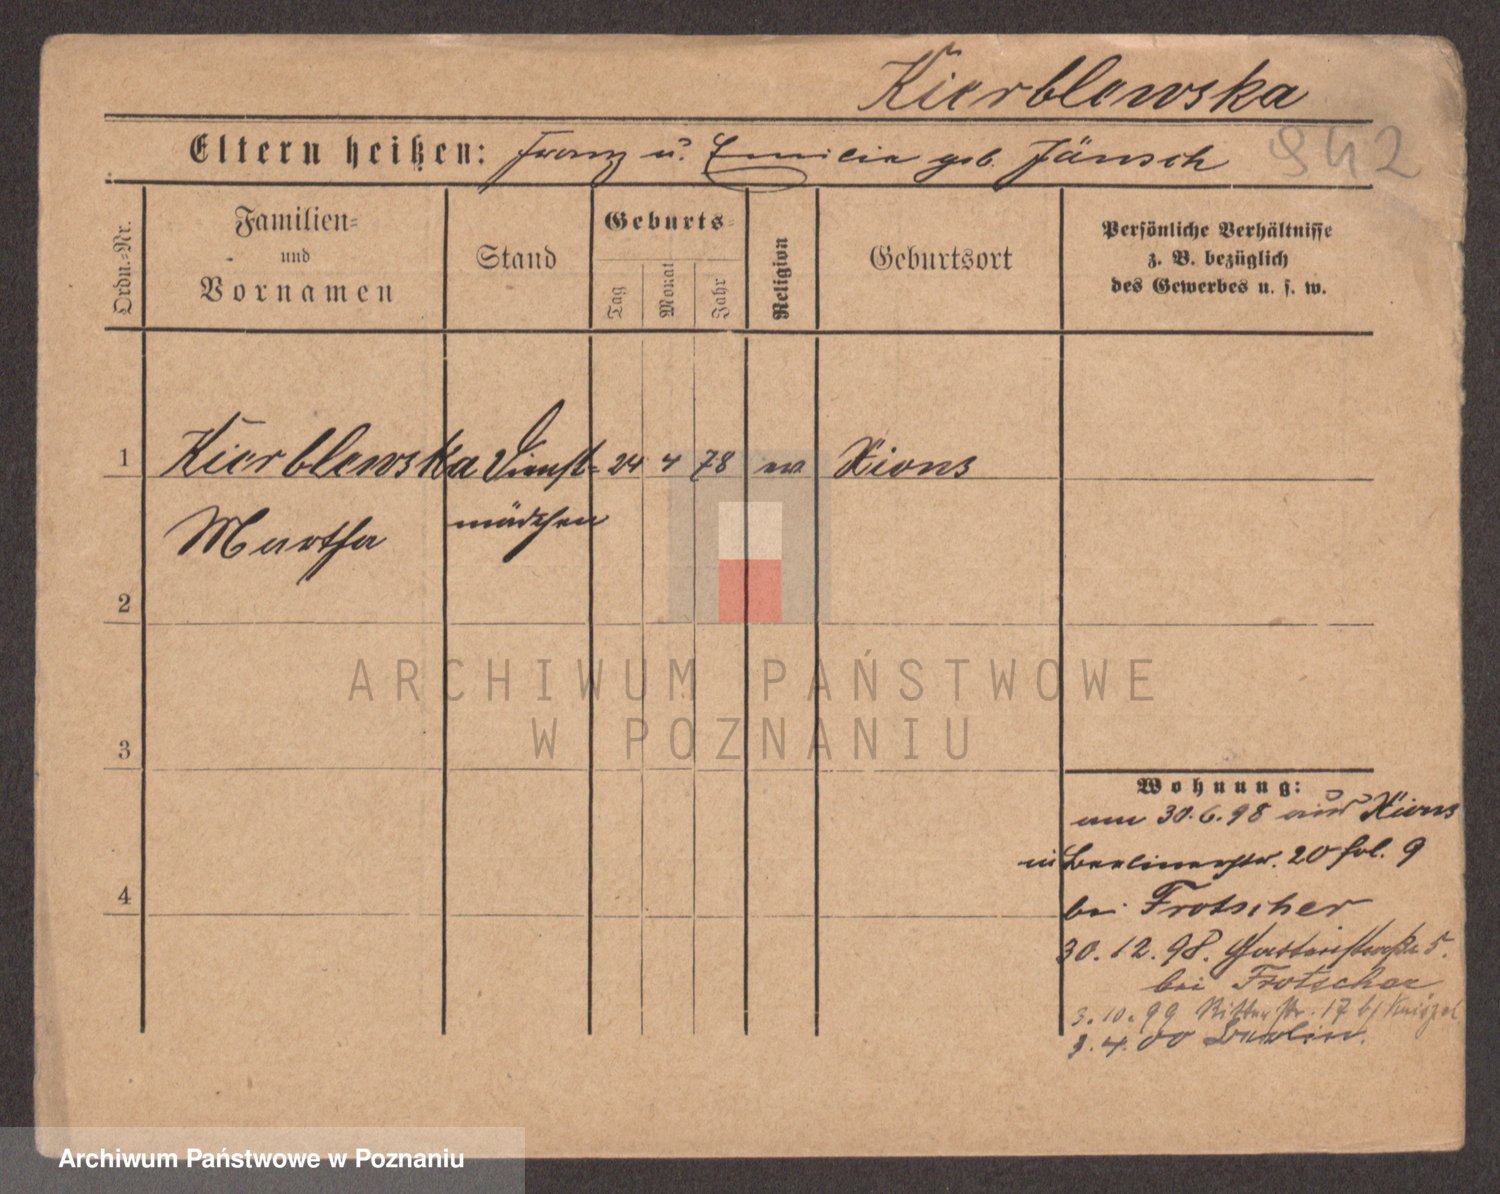 Kierblewska
Eltern heißen: Franz u. Emilie geb. Jänsch
942
Ordn.-Nr.
Familien-
und
Vornamen
Stand
Geburts-
Tag
Monat
Jahr
Religion
Geburtsort
Persönliche Verhältnisse
z. B. bezüglich
des Gewerbes u. s. w.
1 Kierblewska Dienst- 24 4 78 ev Xions
Martha mädchen
2
3
4
Wohnung:
am 30.6.98 aus Xions
in Berlinerstr. 20 fol. 9
bei Frotscher
30.12.98. 5.
bei Frotscher
3.10.99 Ritterstr. 17 b/
3.4.00 Berlin.
ARCHIWUM PAŃSTWOWE
W POZNANIU
Archiwum Państwowe w Poznaniu